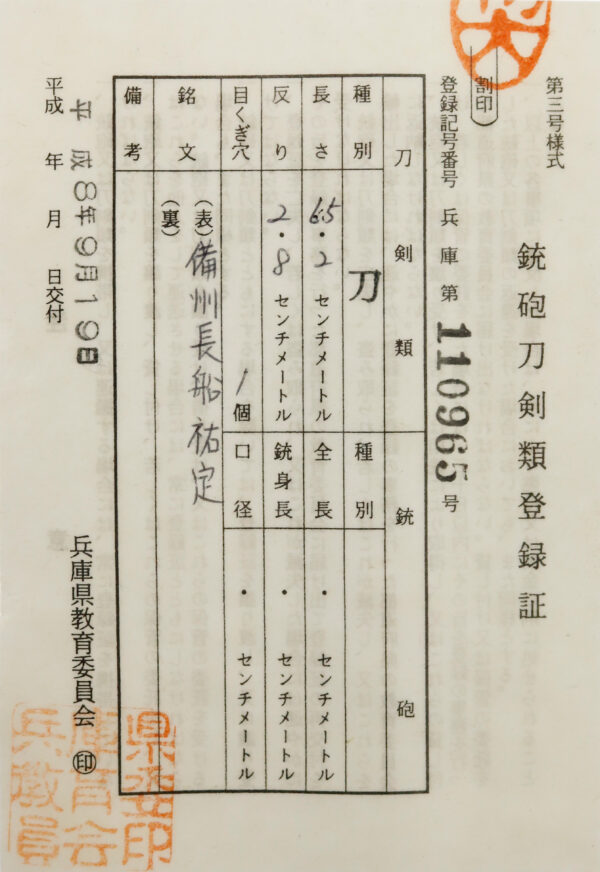 第三号様式
銃砲刀剣類登録証
割印
登録記号番号 兵庫第110965号
刀剣類
銃砲
種別 刀
長さ 65・2センチメートル
反り 2・8センチメートル
目くぎ穴 1個
銘文 (表) 備州長船祐定
(裏)
備考
種別
全長 ・センチメートル
銃身長 ・センチメートル
口径 ・センチメートル
平成 年 月 日交付
平成8年9月19日
兵庫県教育委員会 ㊞